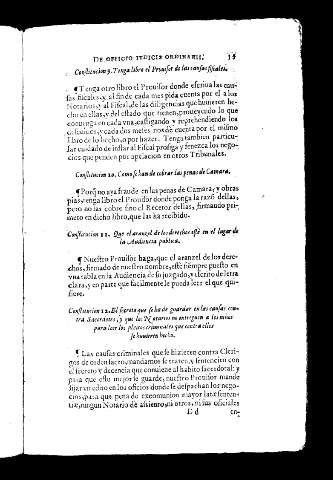 DE OFICIO IUDICIS ORDINARII.
Constitucion 9. Tenga libro el Prouisor de las causas fiscales.
¶ Tenga otro libro el Prouisor donde escriua las cau-
sas fiscales, y al fin de cada mes pida cuenta por el a los
Notarios, y al Fiscal, de las diligencias que huuieren he-
cho en ellas, y del estado que tienen, proueyendo lo que
conuenga en cada vna, castigando y reprehendiendo los
defectos, y cada dos meses nos dè cuenta por el mismo
libro de lo hecho, o por hazer. Tenga tambien particu-
lar cuidado de instar al Fiscal prosiga y fenezca los nego-
cios que penden por apelacion en otros Tribunales.
Constitucion 10. Como se han de cobrar las penas de Camara.
¶ Porq̃ no aya fraude en las penas de Camara, y obras
pias, tenga libro el Prouisor donde ponga la razõ dellas,
pero no las cobre sino el Recetor dellas, firmando pri-
mero en dicho libro, que las ha recibido.
Constitucion 11. Que el aranzel de los derechos estè en el lugar de
la Audiencia publica.
¶ Nuestro Prouisor haga, que el aranzel de los dere-
chos, firmado de nuestro nombre, estè siempre puesto en
vna tabla en la Audiencia de su juzgado, y escrito de letra
clara, y en parte que facilmente le pueda leer el que qui-
siere.
Constitucion 12. El secreto que se ha de guardar en las causas con-
tra Sacerdotes, y que los Notarios no entreguen a los niños
para leer los pleitos criminales que contra ellos
se huuieren hecho.
¶ Las causas criminales que se hizieren contra Cleri-
gos de orden sacro, mandamos se traten, y sentencien con
el secreto y decencia que conuiene al habito sacerdotal: y
para que esto mejor se guarde, nuestro Prouisor mande
fijar vn edito en los oficios donde se despachan los nego-
cios, para que pena de excomunion mayor latæ senten-
tiæ, ningun Notario de assiento, ni otros, ni sus oficiales
en-